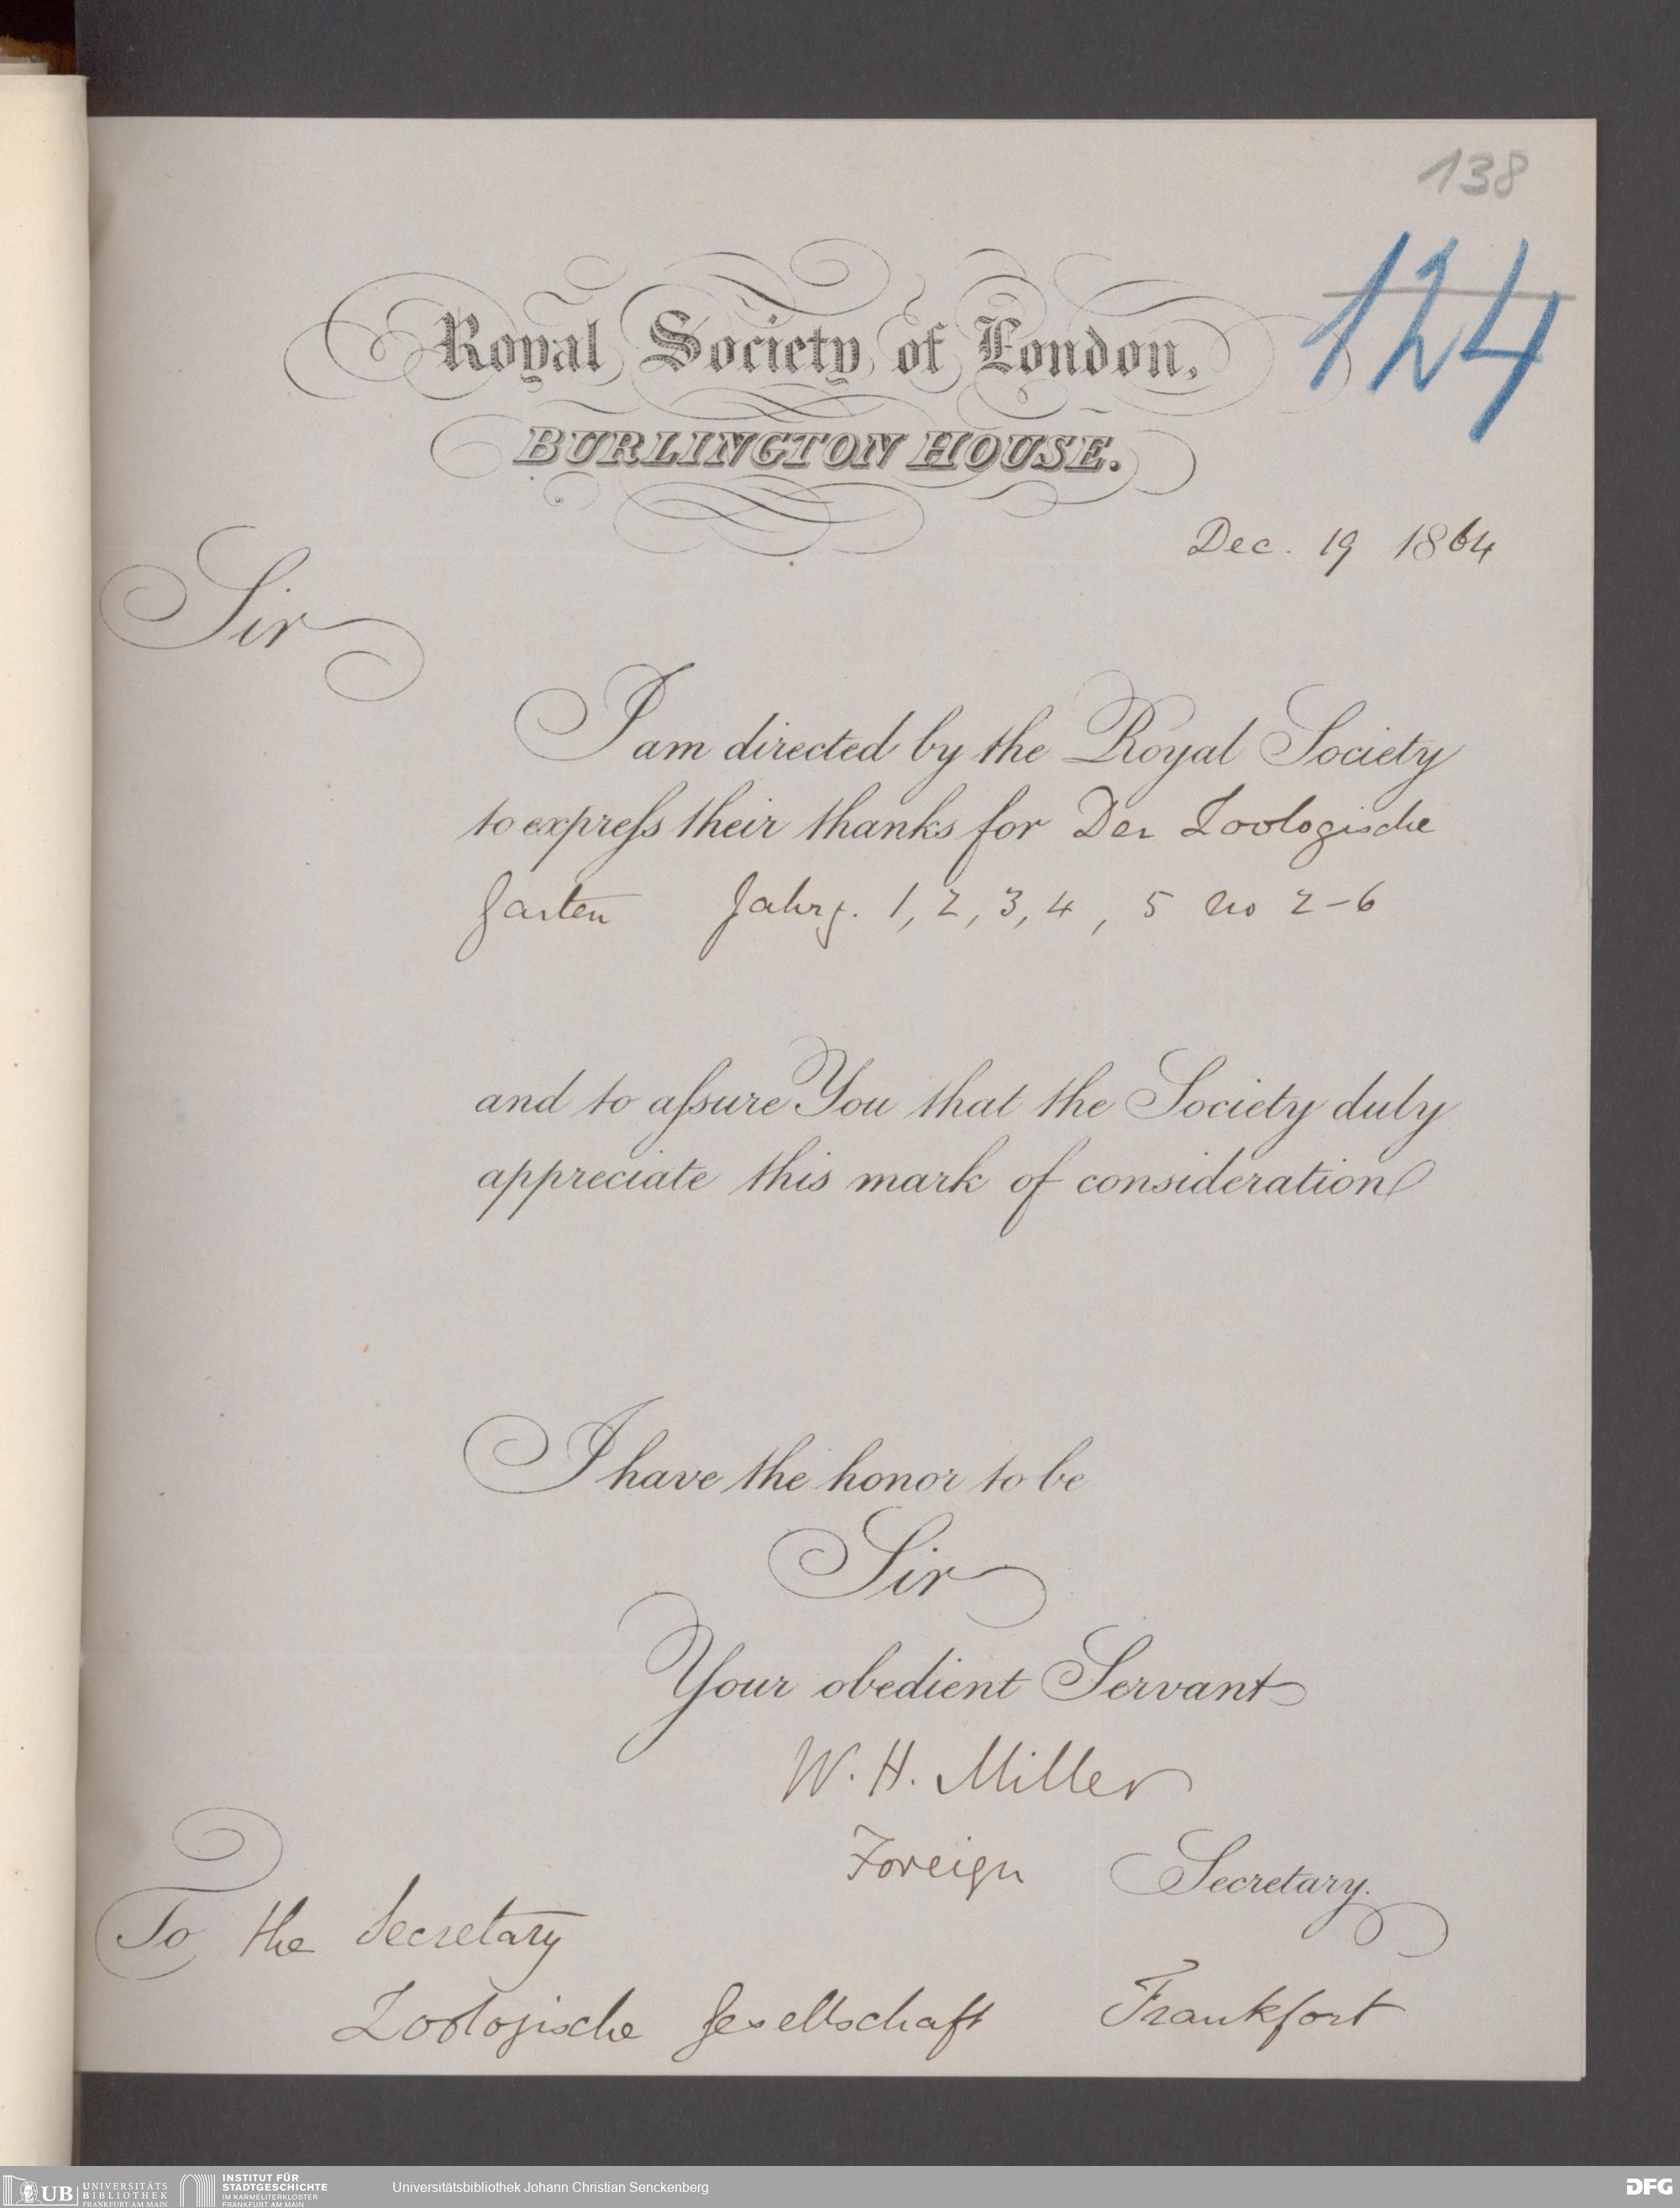 138
124
Royal Society of London,
BURLINGTON HOUSE.
Dec. 19 1864
Sir
I am directed by the Royal Society
to expreſs their thanks for Der Zoologische
Garten Jahrg. 1, 2, 3, 4, 5 No 2-6
and to aſsure You that the Society duly
appreciate this mark of consideration
I have the honor to be
Sir
Your obedient Servant
W. H. Miller
Foreign Secretary.
To the Secretary
Zoologische Gesellschaft Frankfort
UB UNIVERSITÄTS BIBLIOTHEK FRANKFURT AM MAIN
INSTITUT FÜR STADTGESCHICHTE IM KARMELITERKLOSTER FRANKFURT AM MAIN
Universitätsbibliothek Johann Christian Senckenberg
DFG